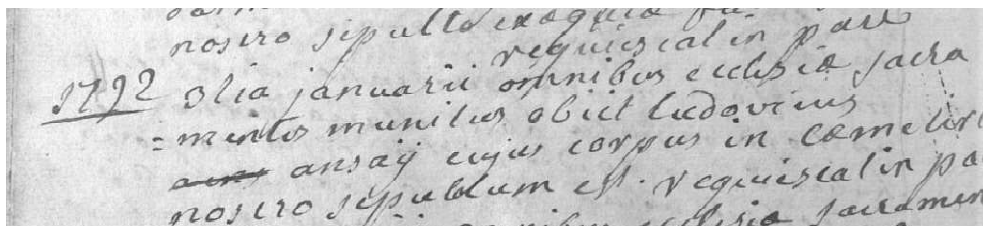 nostro sepulto exequiæ
requiescat in pace
1792 3tia januarii omnibus ecclesiæ sacra
=mentis munitus obiit ludovicus
ansay cujus corpus in cæmeteri
nostro sepultum est. requiescat in pa
ecclesiæ sacramen